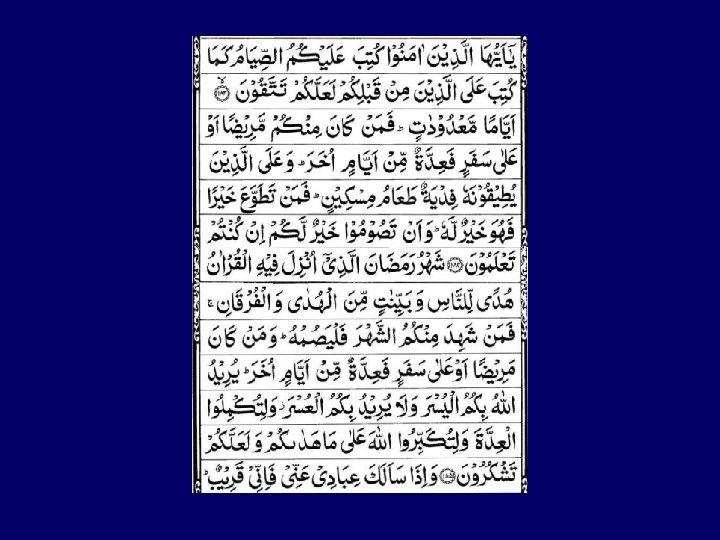 يٰۤاَيُّهَا الَّذِيْنَ اٰمَنُوْا كُتِبَ عَلَيْكُمُ الصِّيَامُ كَمَا
كُتِبَ عَلَى الَّذِيْنَ مِنْ قَبْلِكُمْ لَعَلَّكُمْ تَتَّقُوْنَ ۙ﴿۱۸۳﴾
اَيَّامًا مَّعْدُوْدٰتٍ ؕ فَمَنْ كَانَ مِنْكُمْ مَّرِيْضًا اَوْ
عَلٰى سَفَرٍ فَعِدَّةٌ مِّنْ اَيَّامٍ اُخَرَ ؕ وَعَلَى الَّذِيْنَ
يُطِيْقُوْنَهٗ فِدْيَةٌ طَعَامُ مِسْكِيْنٍ ؕ فَمَنْ تَطَوَّعَ خَيْرًا
فَهُوَ خَيْرٌ لَّهٗ ؕ وَاَنْ تَصُوْمُوْا خَيْرٌ لَّكُمْ اِنْ كُنْتُمْ
تَعْلَمُوْنَ ﴿۱۸۴﴾ شَهْرُ رَمَضَانَ الَّذِيْۤ اُنْزِلَ فِيْهِ الْقُرْاٰنُ
هُدًى لِّلنَّاسِ وَ بَيِّنٰتٍ مِّنَ الْهُدٰى وَ الْفُرْقَانِ ۚ
فَمَنْ شَهِدَ مِنْكُمُ الشَّهْرَ فَلْيَصُمْهُ ؕ وَمَنْ كَانَ
مَرِيْضًا اَوْ عَلٰى سَفَرٍ فَعِدَّةٌ مِّنْ اَيَّامٍ اُخَرَ ؕ يُرِيْدُ
اللّٰهُ بِكُمُ الْيُسْرَ وَلَا يُرِيْدُ بِكُمُ الْعُسْرَ ؗ وَلِتُكْمِلُوا
الْعِدَّةَ وَلِتُكَبِّرُوا اللّٰهَ عَلٰى مَا هَدٰىكُمْ وَ لَعَلَّكُمْ
تَشْكُرُوْنَ ﴿۱۸۵﴾ وَاِذَا سَاَلَكَ عِبَادِيْ عَنِّيْ فَاِنِّيْ قَرِيْبٌ ؕ